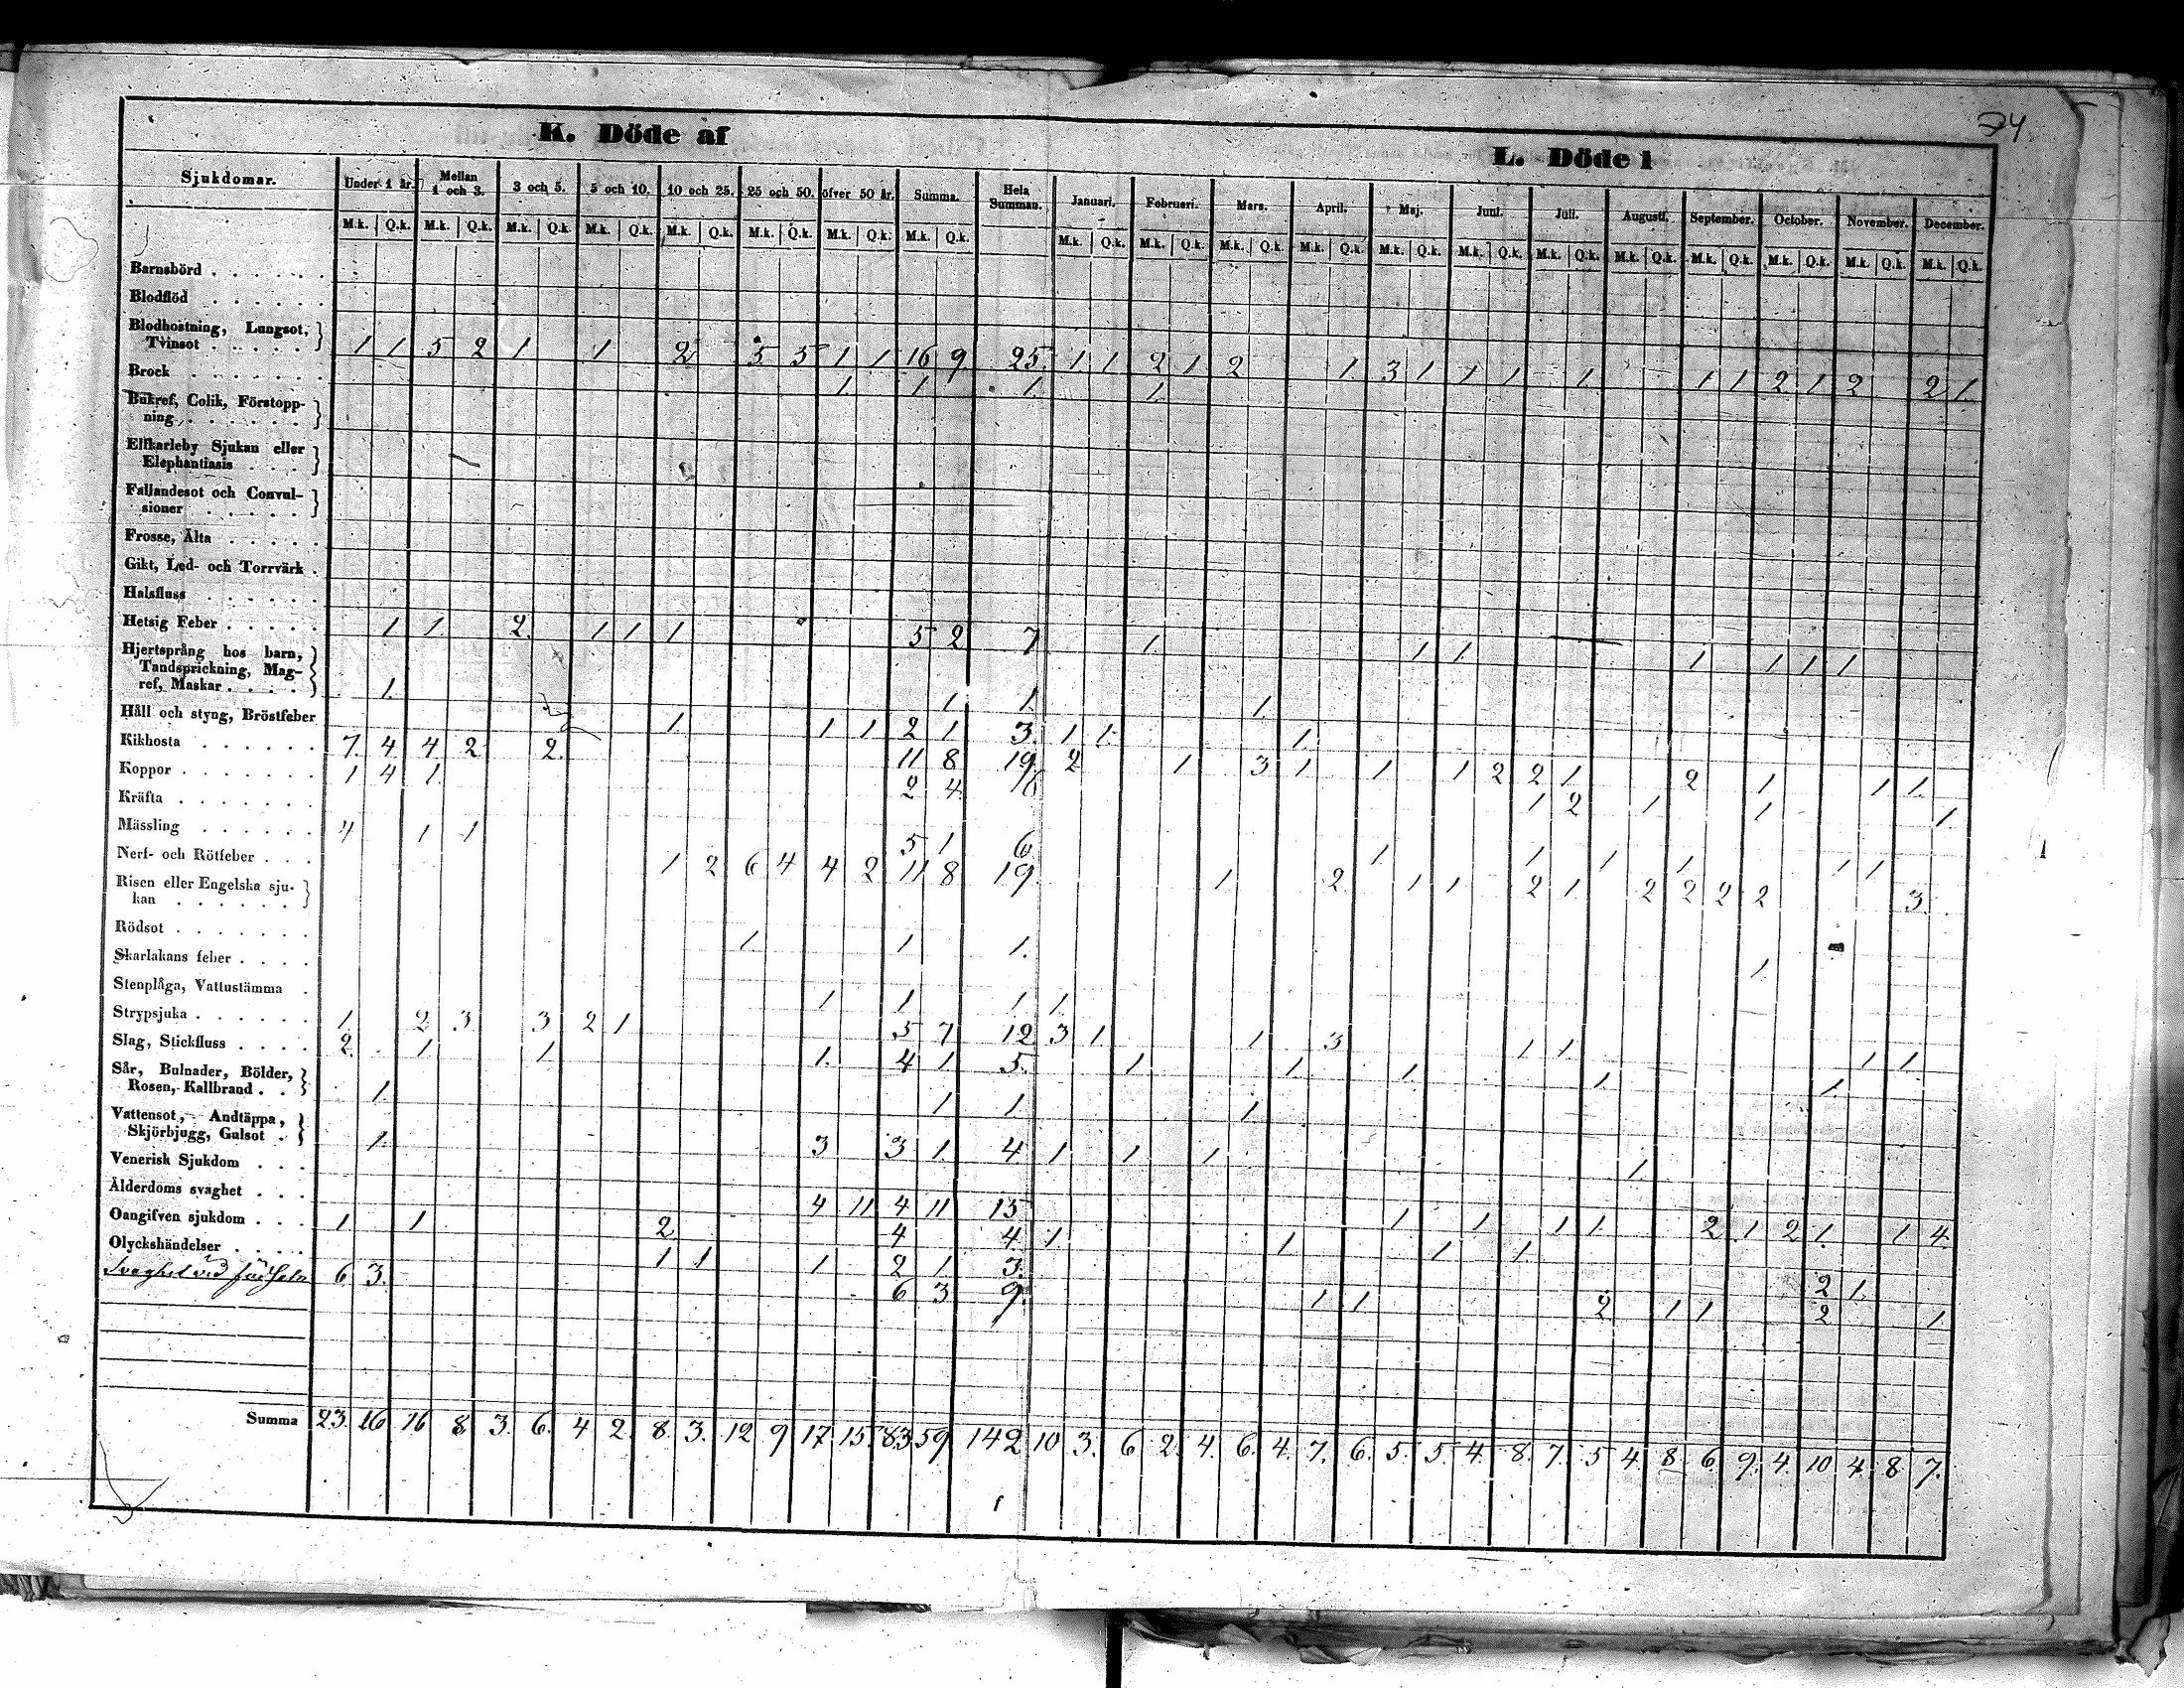 74
K. Döde af
L. Döde i
Sjukdomar. Under 1 år. Mellan 1 och 3. 3 och 5. 5 och 10. 10 och 25. 25 och 50. öfver 50 år. Summa. Hela Summan. Januari. Februari. Mars. April. Maj. Juni. Juli. Augusti. September. October. November. December.
M.k. Q.k. M.k. Q.k. M.k. Q.k. M.k. Q.k. M.k. Q.k. M.k. Q.k. M.k. Q.k. M.k. Q.k. M.k. Q.k. M.k. Q.k. M.k. Q.k. M.k. Q.k. M.k. Q.k. M.k. Q.k. M.k. Q.k. M.k. Q.k. M.k. Q.k. M.k. Q.k. M.k. Q.k. M.k. Q.k.
Barnsbörd . . . . . .
Blodflöd . . . . . .
Blodhostning, Lungsot,
Tvinsot . . . . . 1 1 5 2 1 1 2 5 5 1 1 16 9. 25. 1 1 2 1 2 1. 3 1 1 1 1. 1 1 2 1 2 2 1.
Brock . . . . . . . 1. 1. 1. 1.
Bukref, Colik, Förstopp-
ning . . . . . .
Elfkarleby Sjukan eller
Elephantiasis . . .
Fallandesot och Convul-
sioner . . . . .
Frosse, Älta . . . . .
Gikt, Led- och Torrvärk .
Halsfluss . . . . .
Hetsig Feber . . . . . 1. 1. 2. 1 1 1. 5 2 7 1. 1 1. 1 1 1 1
Hjertsprång hos barn,
Tandsprickning, Mag-
ref, Maskar . . . . 1. 1. 1. 1.
Håll och styng, Bröstfeber 1. 1 1 2 1 3. 1 1. 1.
Kikhosta . . . . . . 7. 4 4 2 2. 11 8 19. 2 1 3 1 1 1 2 2 1 2 1 1 1.
Koppor . . . . . . . 1 4 1. 2 4. 1 2 1 1 1.
Kräfta . . . . . . .
Mässling . . . . . . 4 1 1 5 1 6 1 1 1 1 1 1
Nerf- och Rötfeber . . . 1 2 6 4 4 2 11 8 19. 1 2. 1 1 2 1 2 2 2 2 3.
Risen eller Engelska sju-
kan . . . . . .
Rödsot . . . . . . . 1. 1 1. 1
Skarlakans feber . . . .
Stenplåga, Vattustämma . 1 1 1 1.
Strypsjuka . . . . . . 1. 2 3 3 2 1 5 7 12 3 1 1 3 1 1. 1 1.
Slag, Stickfluss . . . . 2. 1 1. 1. 4 1 5. 1 1. 1. 1. 1.
Sår, Bulnader, Bölder,
Rosen, Kallbrand . . 1. 1 1 1
Vattensot, Andtäppa,
Skjörbjugg, Gulsot . 1. 3 3 1 4 1 1 1 1.
Venerisk Sjukdom . . .
Ålderdoms svaghet . . . 4 11 4 11 15 1 1 1 1 2 1 2 1. 1 4.
Oangifven sjukdom . . . 1. 1 2 4 4. 1 1 1 1.
Olyckshändelser . . . . 1 1 1 2 1 3. 2 1.
Svaghet vid födseln 6 3. 6 3 9. 1 1 2. 1 1 2 1
Summa 23. 16 16 8 3. 6. 4 2. 8. 3. 12 9 17. 15. 83 59. 142. 10 3. 6 2. 4. 6. 4. 7. 6. 5. 5. 4. 8. 7. 5 4. 8. 6. 9. 4. 10 4. 8. 7.